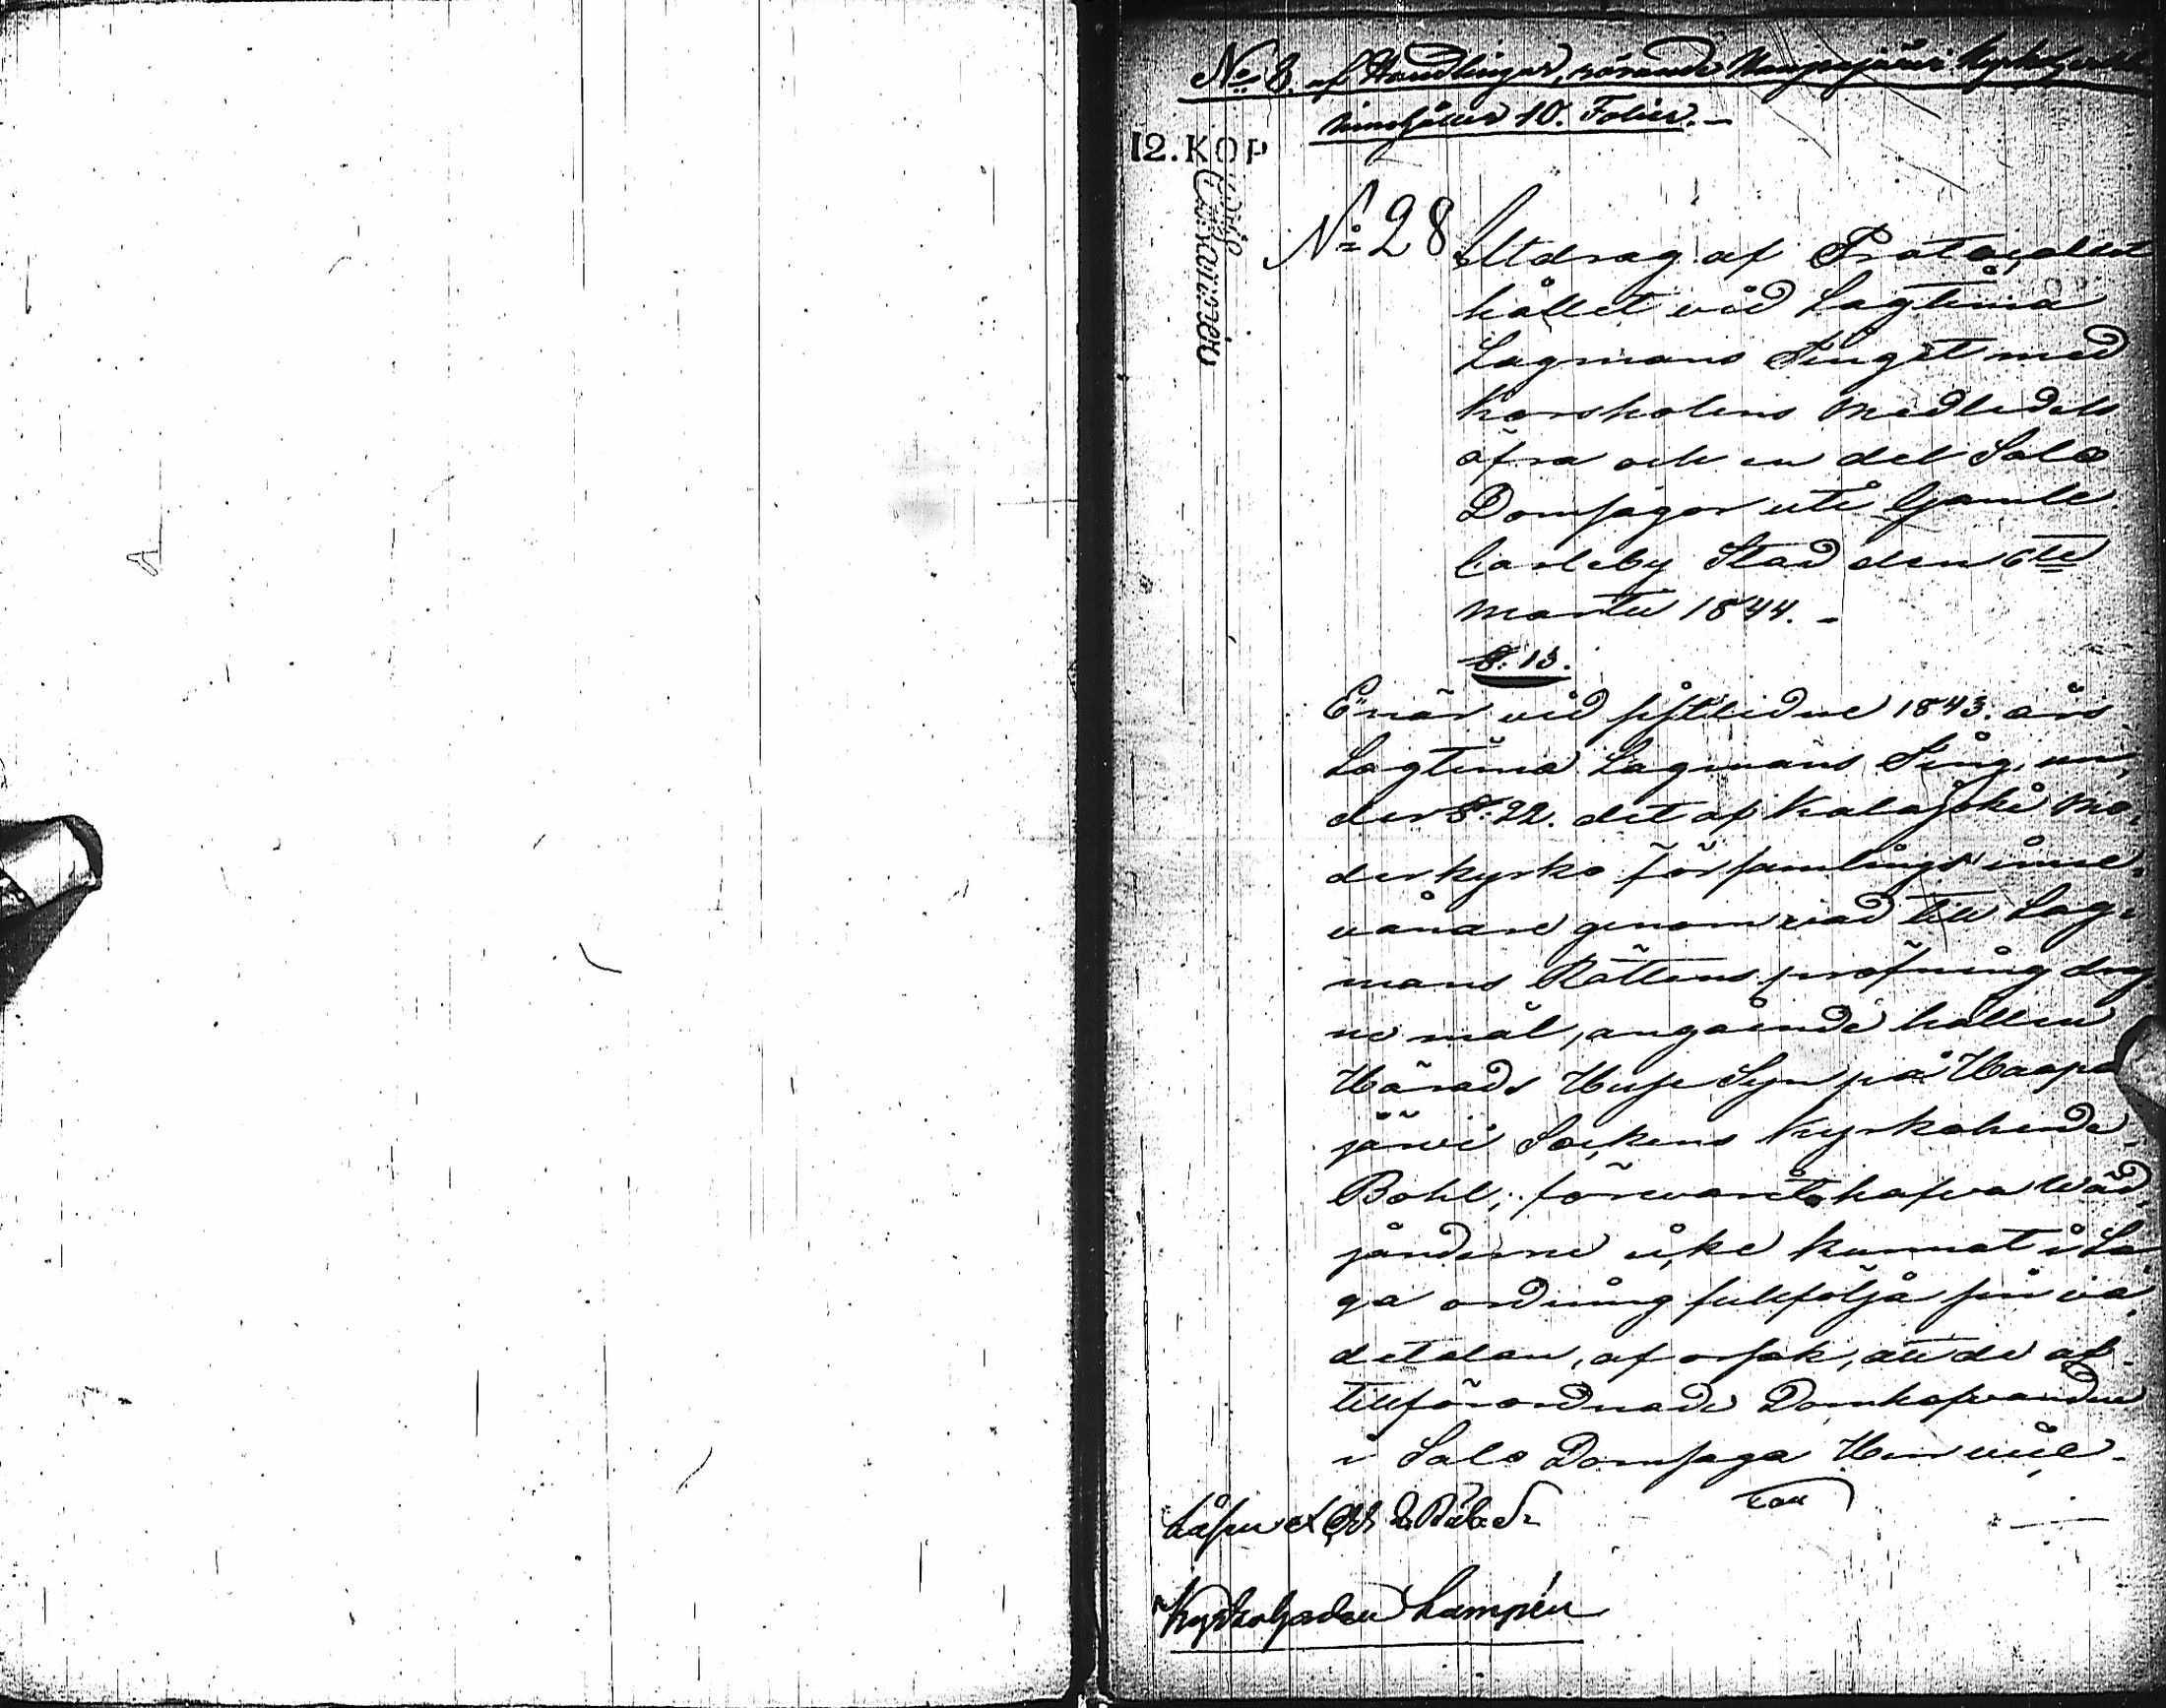 No 8. af Handlingar, rörande Haapajärvi
innehåller 10. Folier.
12. KOP
No 28
Utdrag af Protocollet
hållet vid Lagtima
Lagmans Tinget med
Korsholms Medledels
öfra och en del Salo
Domsagor uti Gamle
Carleby Stad den 6te
Martii 1844.
§. 13.
Enär vid sistledne 1843. års
Lagtima Lagmans Ting, un,
der §. 22. det af Kalajoki Mo,
derkyrko församlings inne,
vånare genom vad till Lag,
mans Rättens pröfning drag
ne mål, angående hållen
Härads Huse Syn på Haapa
järvi Sockens Kyrkoherde
Bohl, förevarit, hafva Väd,
jånderne icke kunnat i La,
ga ordning fullfölja sin va,
detalan, af orsak, att de af
tillförordnade Domhafvanden
i Salo Domsaga Herr vice
Kyrkoherden Lampén